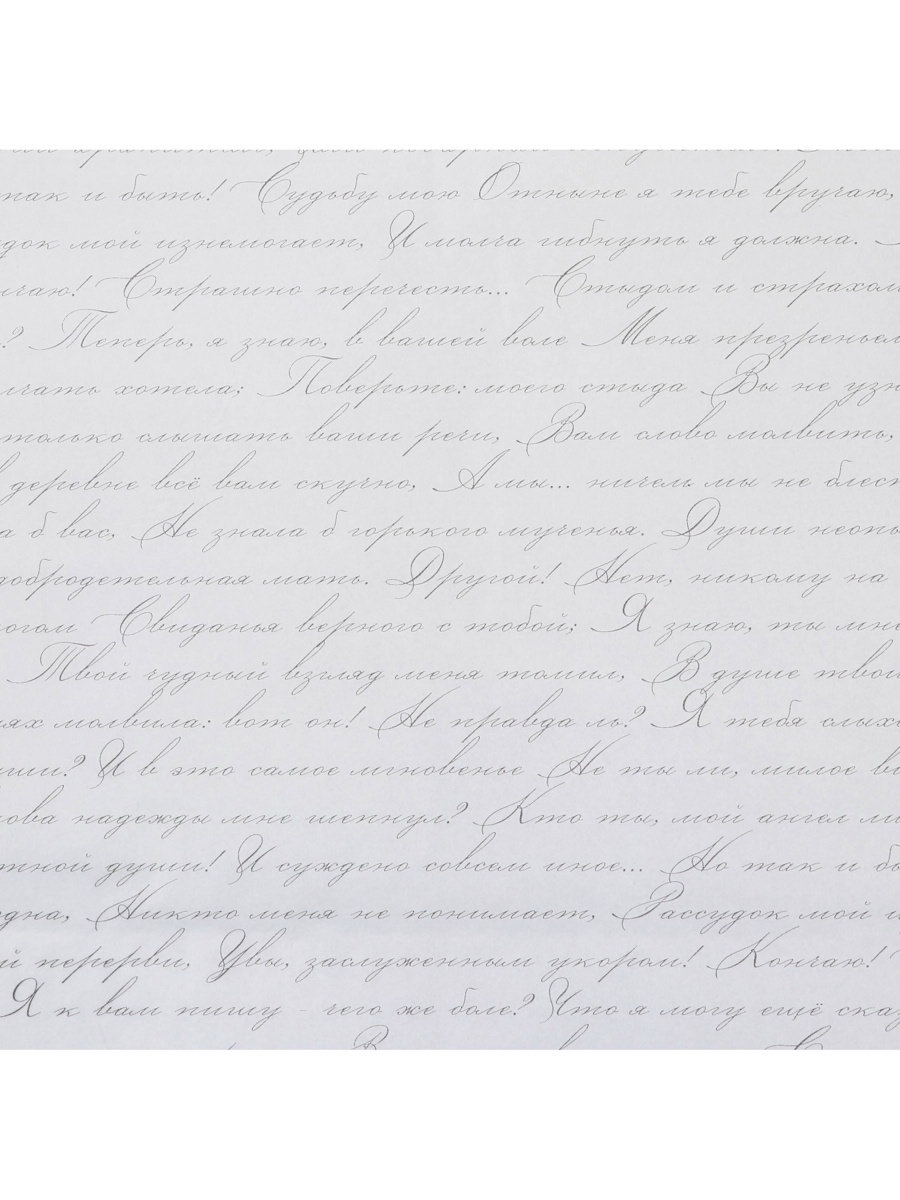 так и быть! Судьбу мою Отныне я тебе вручаю,
док мой изнемогает, И молча гибнуть я должна.
чаю! Страшно перечесть... Стыдом и страхом
? Теперь, я знаю, в вашей воле Меня презреньем
лчать хотела; Поверьте: моего стыда Вы не узн
только слышать ваши речи, Вам слово молвить,
в деревне всё вам скучно, А мы... ничем мы не блест
а б вас, Не знала б горького мученья. Души неопы
добродетельная мать. Другой! Нет, никому на
логом Свиданья верного с тобой; Я знаю, ты мне
Твой чудный взгляд меня томил, В душе твой
лях молвила: вот он! Не правда ль? Я тебя слыха
уши? И в это самое мгновенье Не ты ли, милое ви
лова надежды мне шепнул? Кто ты, мой ангел ли
тной души! И суждено совсем иное... Но так и бы
одна, Никто меня не понимает, Рассудок мой и
й перерви, Увы, заслуженным укором! Кончаю!
Я к вам пишу - чего же боле? Что я могу ещё сказ